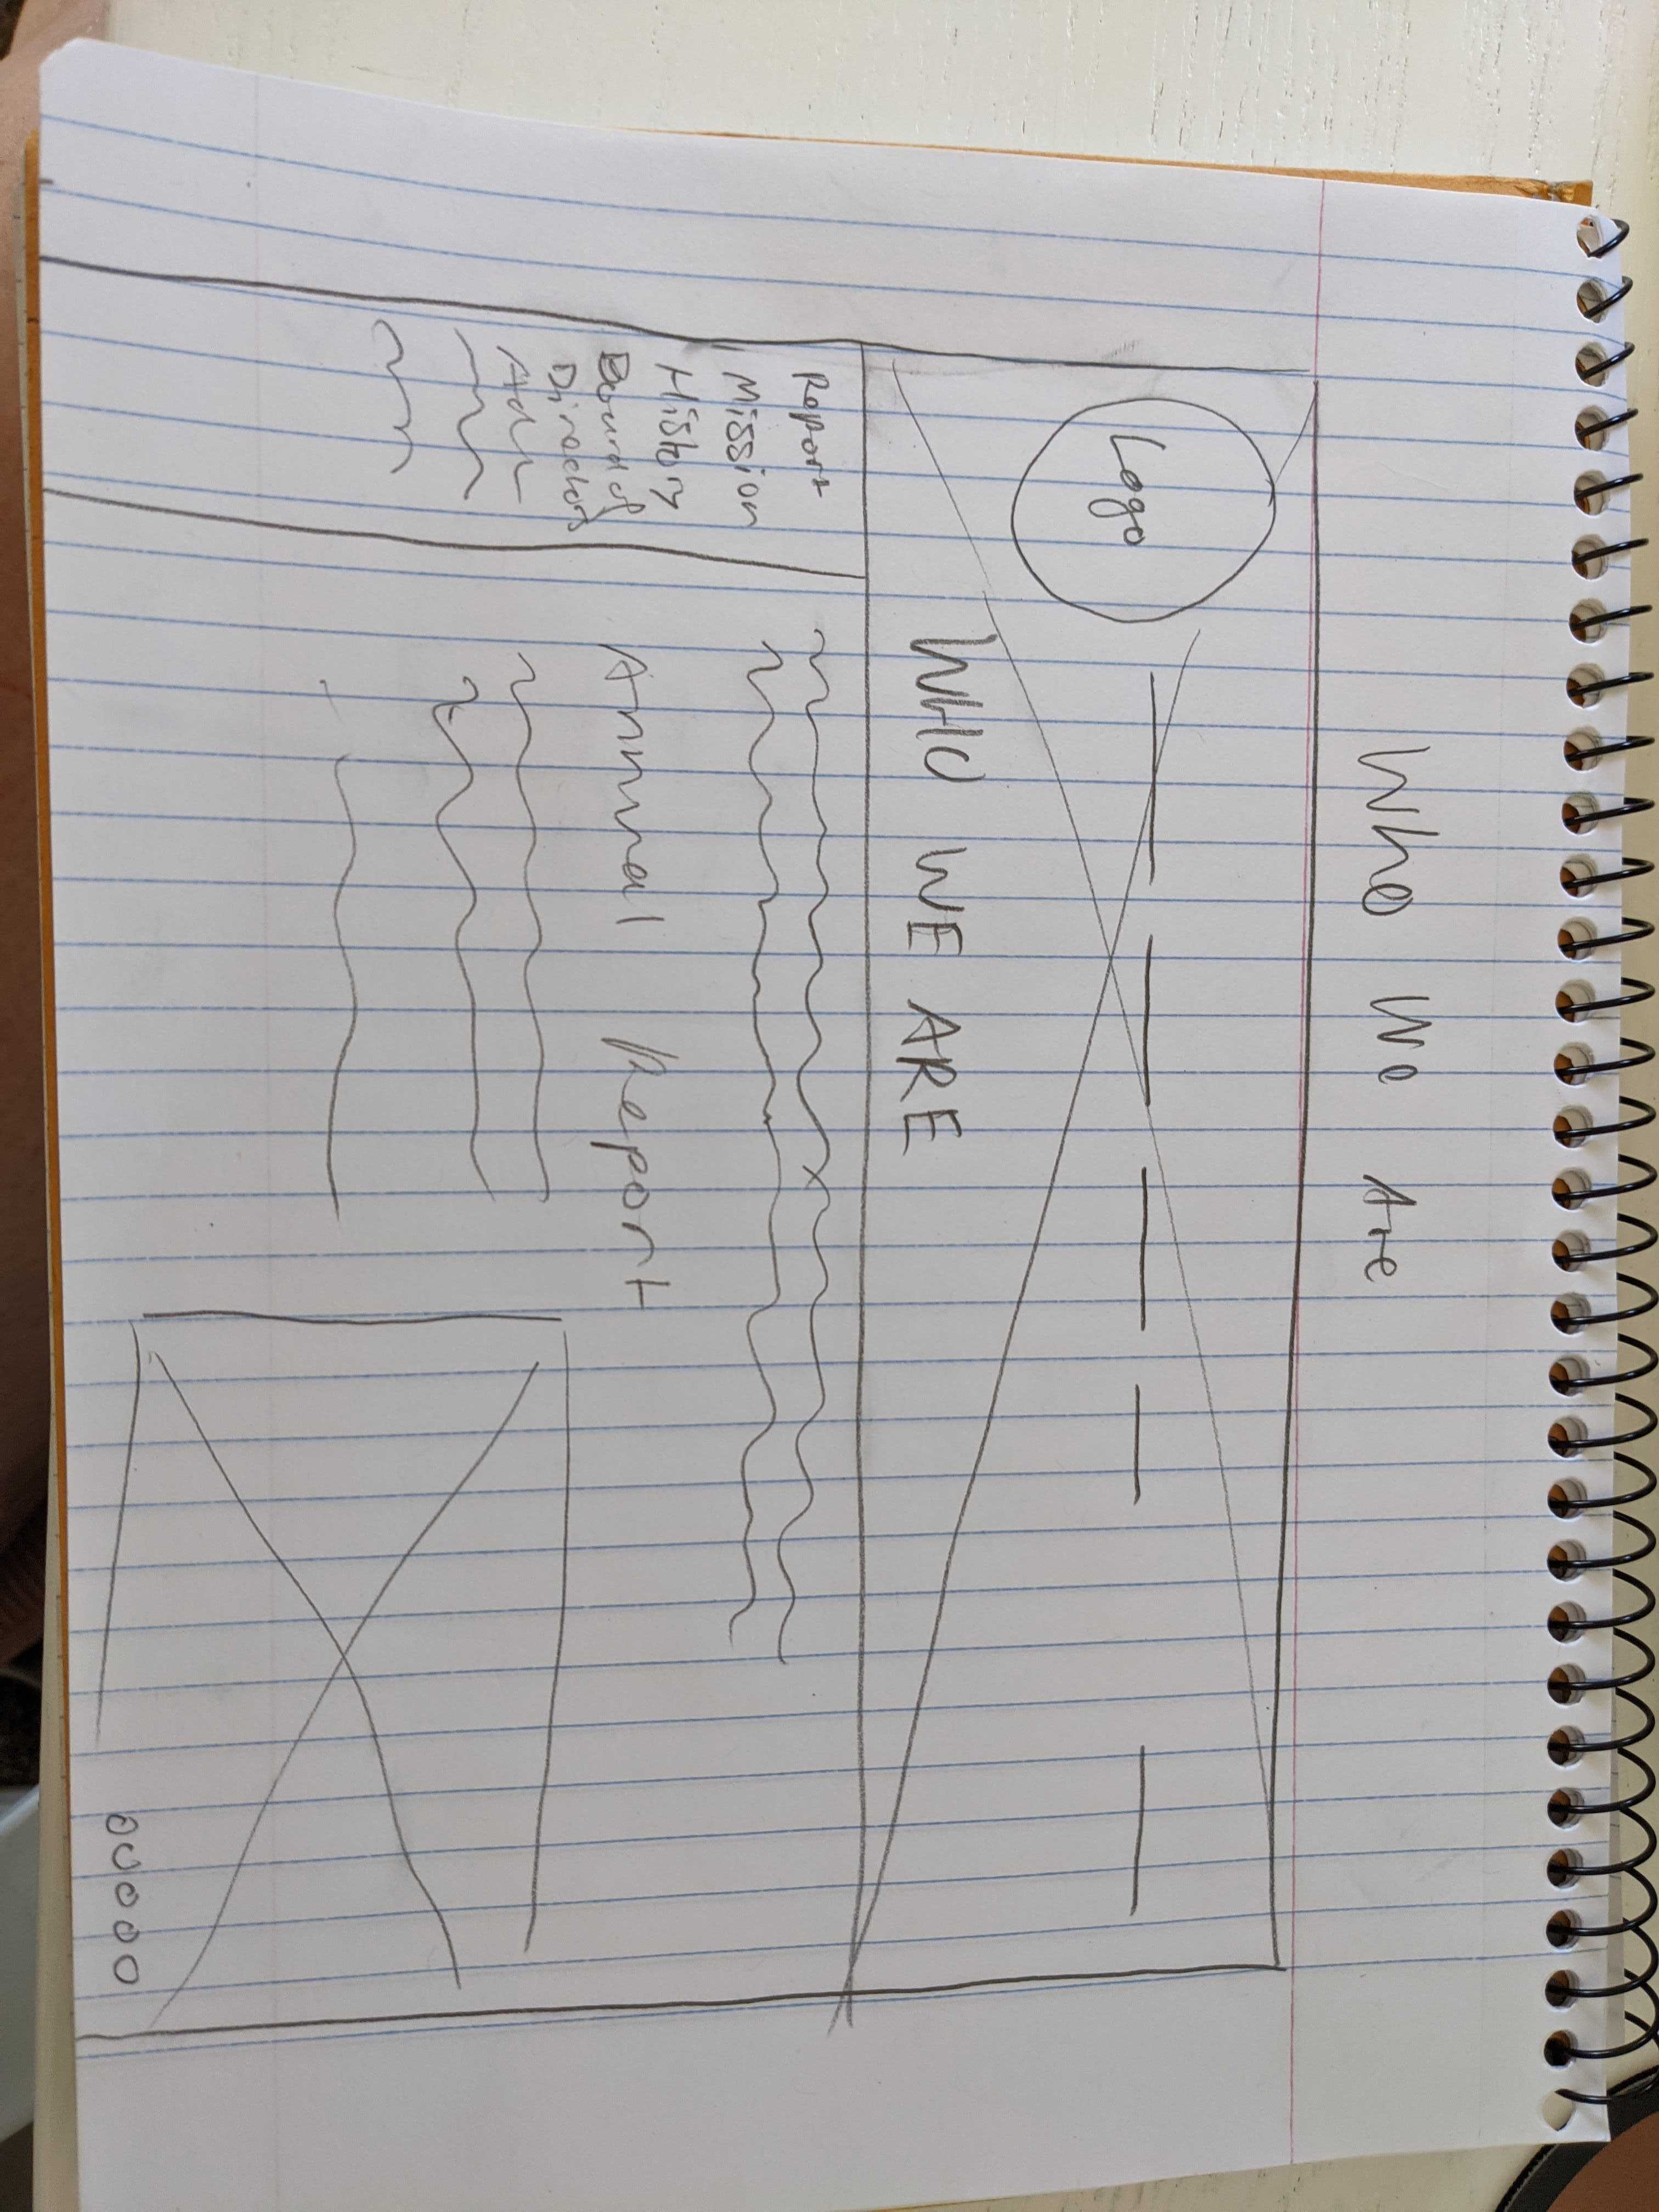 Who We Are
Logo
WHO WE ARE
Report
Mission
History
Board of
Directors
Annual Report